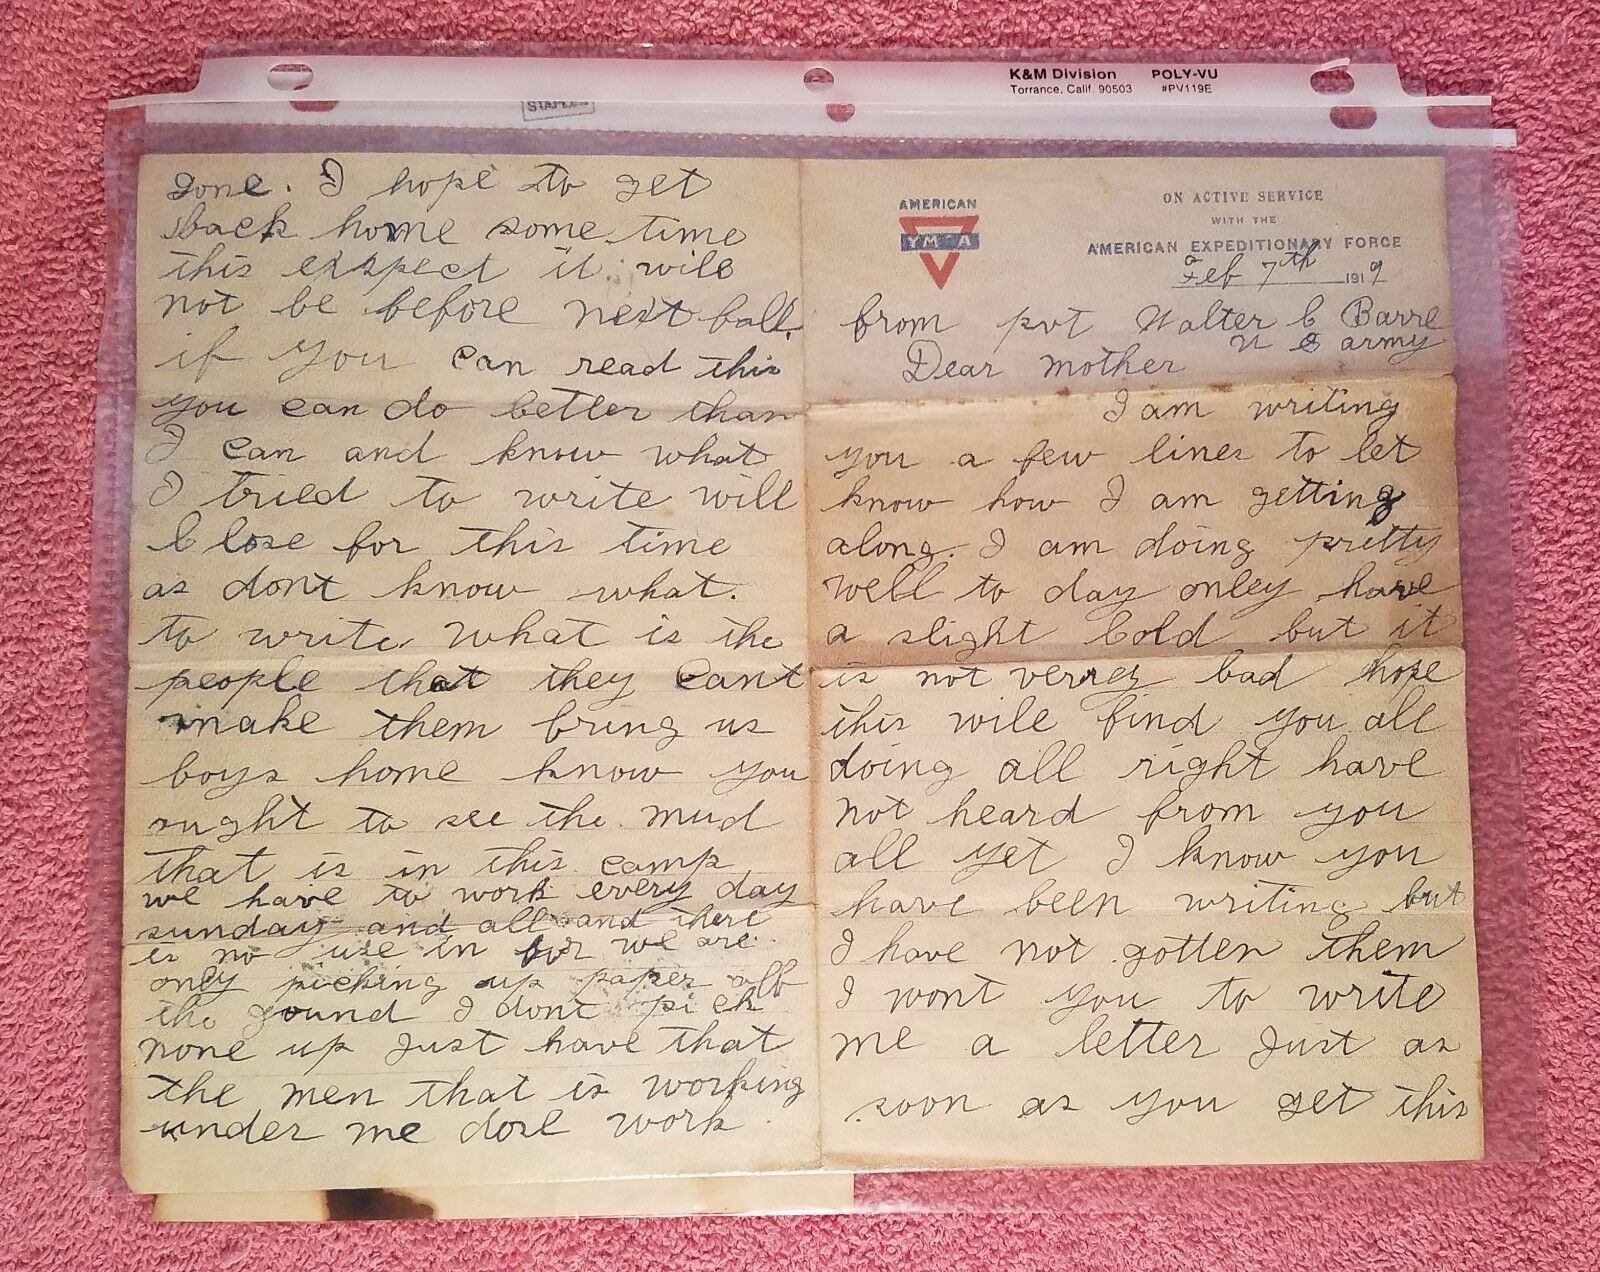 K&M Division POLY-VU
Torrance, Calif. 90503 #PV119E
STAPLES
AMERICAN
YMCA
ON ACTIVE SERVICE
WITH THE
AMERICAN EXPEDITIONARY FORCE
Feb 7th 1919
from pvt Walter C Barre
U S army
Dear Mother
I am writing
you a few lines to let
know how I am getting
along. I am doing pretty
well to day onley have
a slight Cold but it
is not verrey bad hope
this will find you all
doing all right have
not heard from you
all yet I know you
have been writing but
I have not gotten them
I wont you to write
me a letter Just as
soon as you get this
gone. I hope to get
back home some time
this exspect it will
not be before next fall.
if you can read this
you can do better than
I can and know what
I tried to write will
Close for this time
as dont know what.
to write. what is the
people that they Cant
make them bring us
boys home know you
ought to see the mud
that is in this camp
we have to work every day
sunday and all and there
is no use in for we are
only picking up paper off
the gound I dont pick
none up Just have that
the men that is working
under me dose work